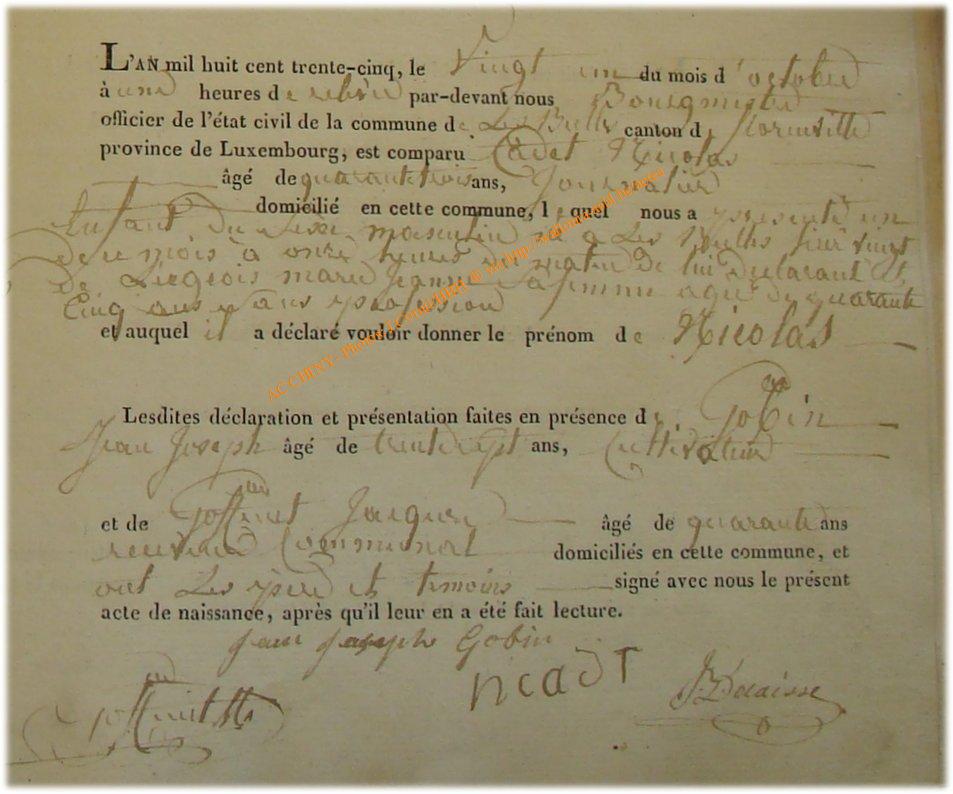 L'AN mil huit cent trente-cinq, le Vingt un du mois d'octobre
à une heures de relevée par-devant nous Bourgmestre
officier de l'état civil de la commune de Les Bulles canton de florenville
province de Luxembourg, est comparu Cadet Nicolas
âgé de quarante trois ans, Journalier
domicilié en cette commune, lequel nous a présenté un
Enfant du sexe masculin né à Les Bulles hier vingt
de ce mois à onze heures du matin de lui declarant et
De Liegeois marie Jeanne sa femme agée de quarante
Cinq ans sans profession
et auquel il a déclaré vouloir donner le prénom de Nicolas
Lesdites déclaration et présentation faites en présence de Gobin
Jean Joseph âgé de trente sept ans, Cultivateur
et de Goffinet Jacques âgé de quarante ans
receveur Communal domiciliés en cette commune, et
ont Les père et temoins signé avec nous le présent
acte de naissance, après qu'il leur en a été fait lecture.
Jean Joseph Gobin
Goffinet ncadt